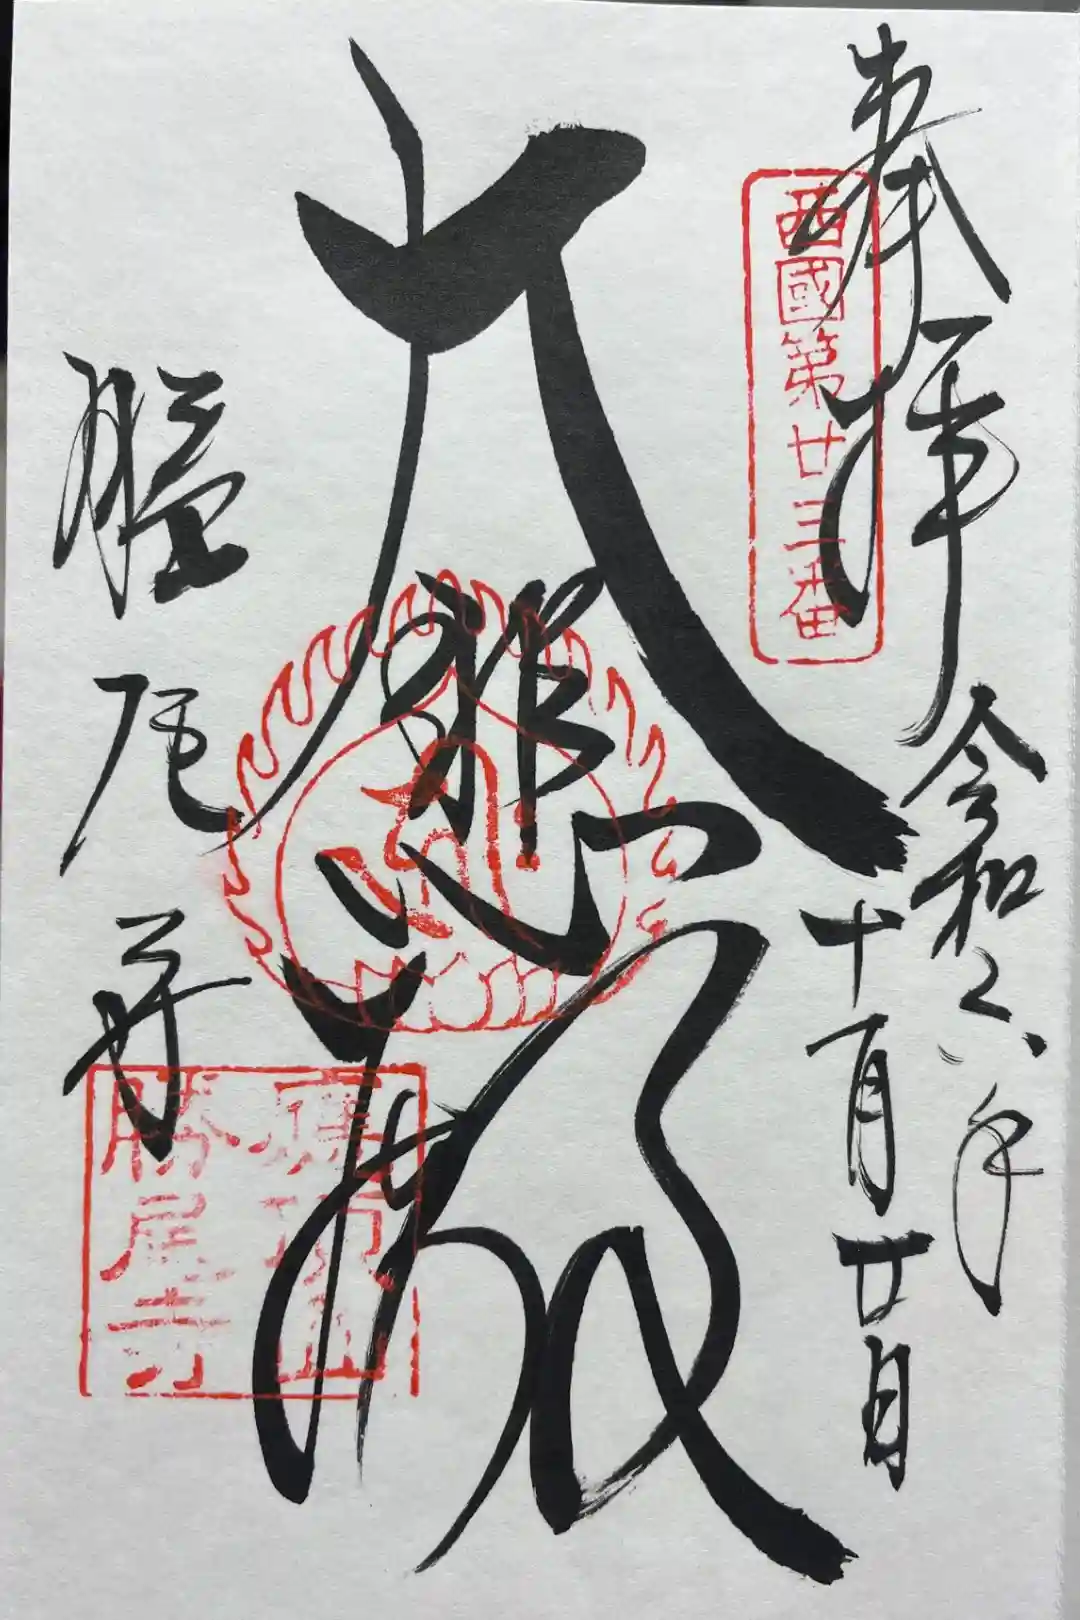 奉拝
西國第廿三番
令和六年
十月廿日
大悲殿
勝尾寺
應頂山
勝尾寺